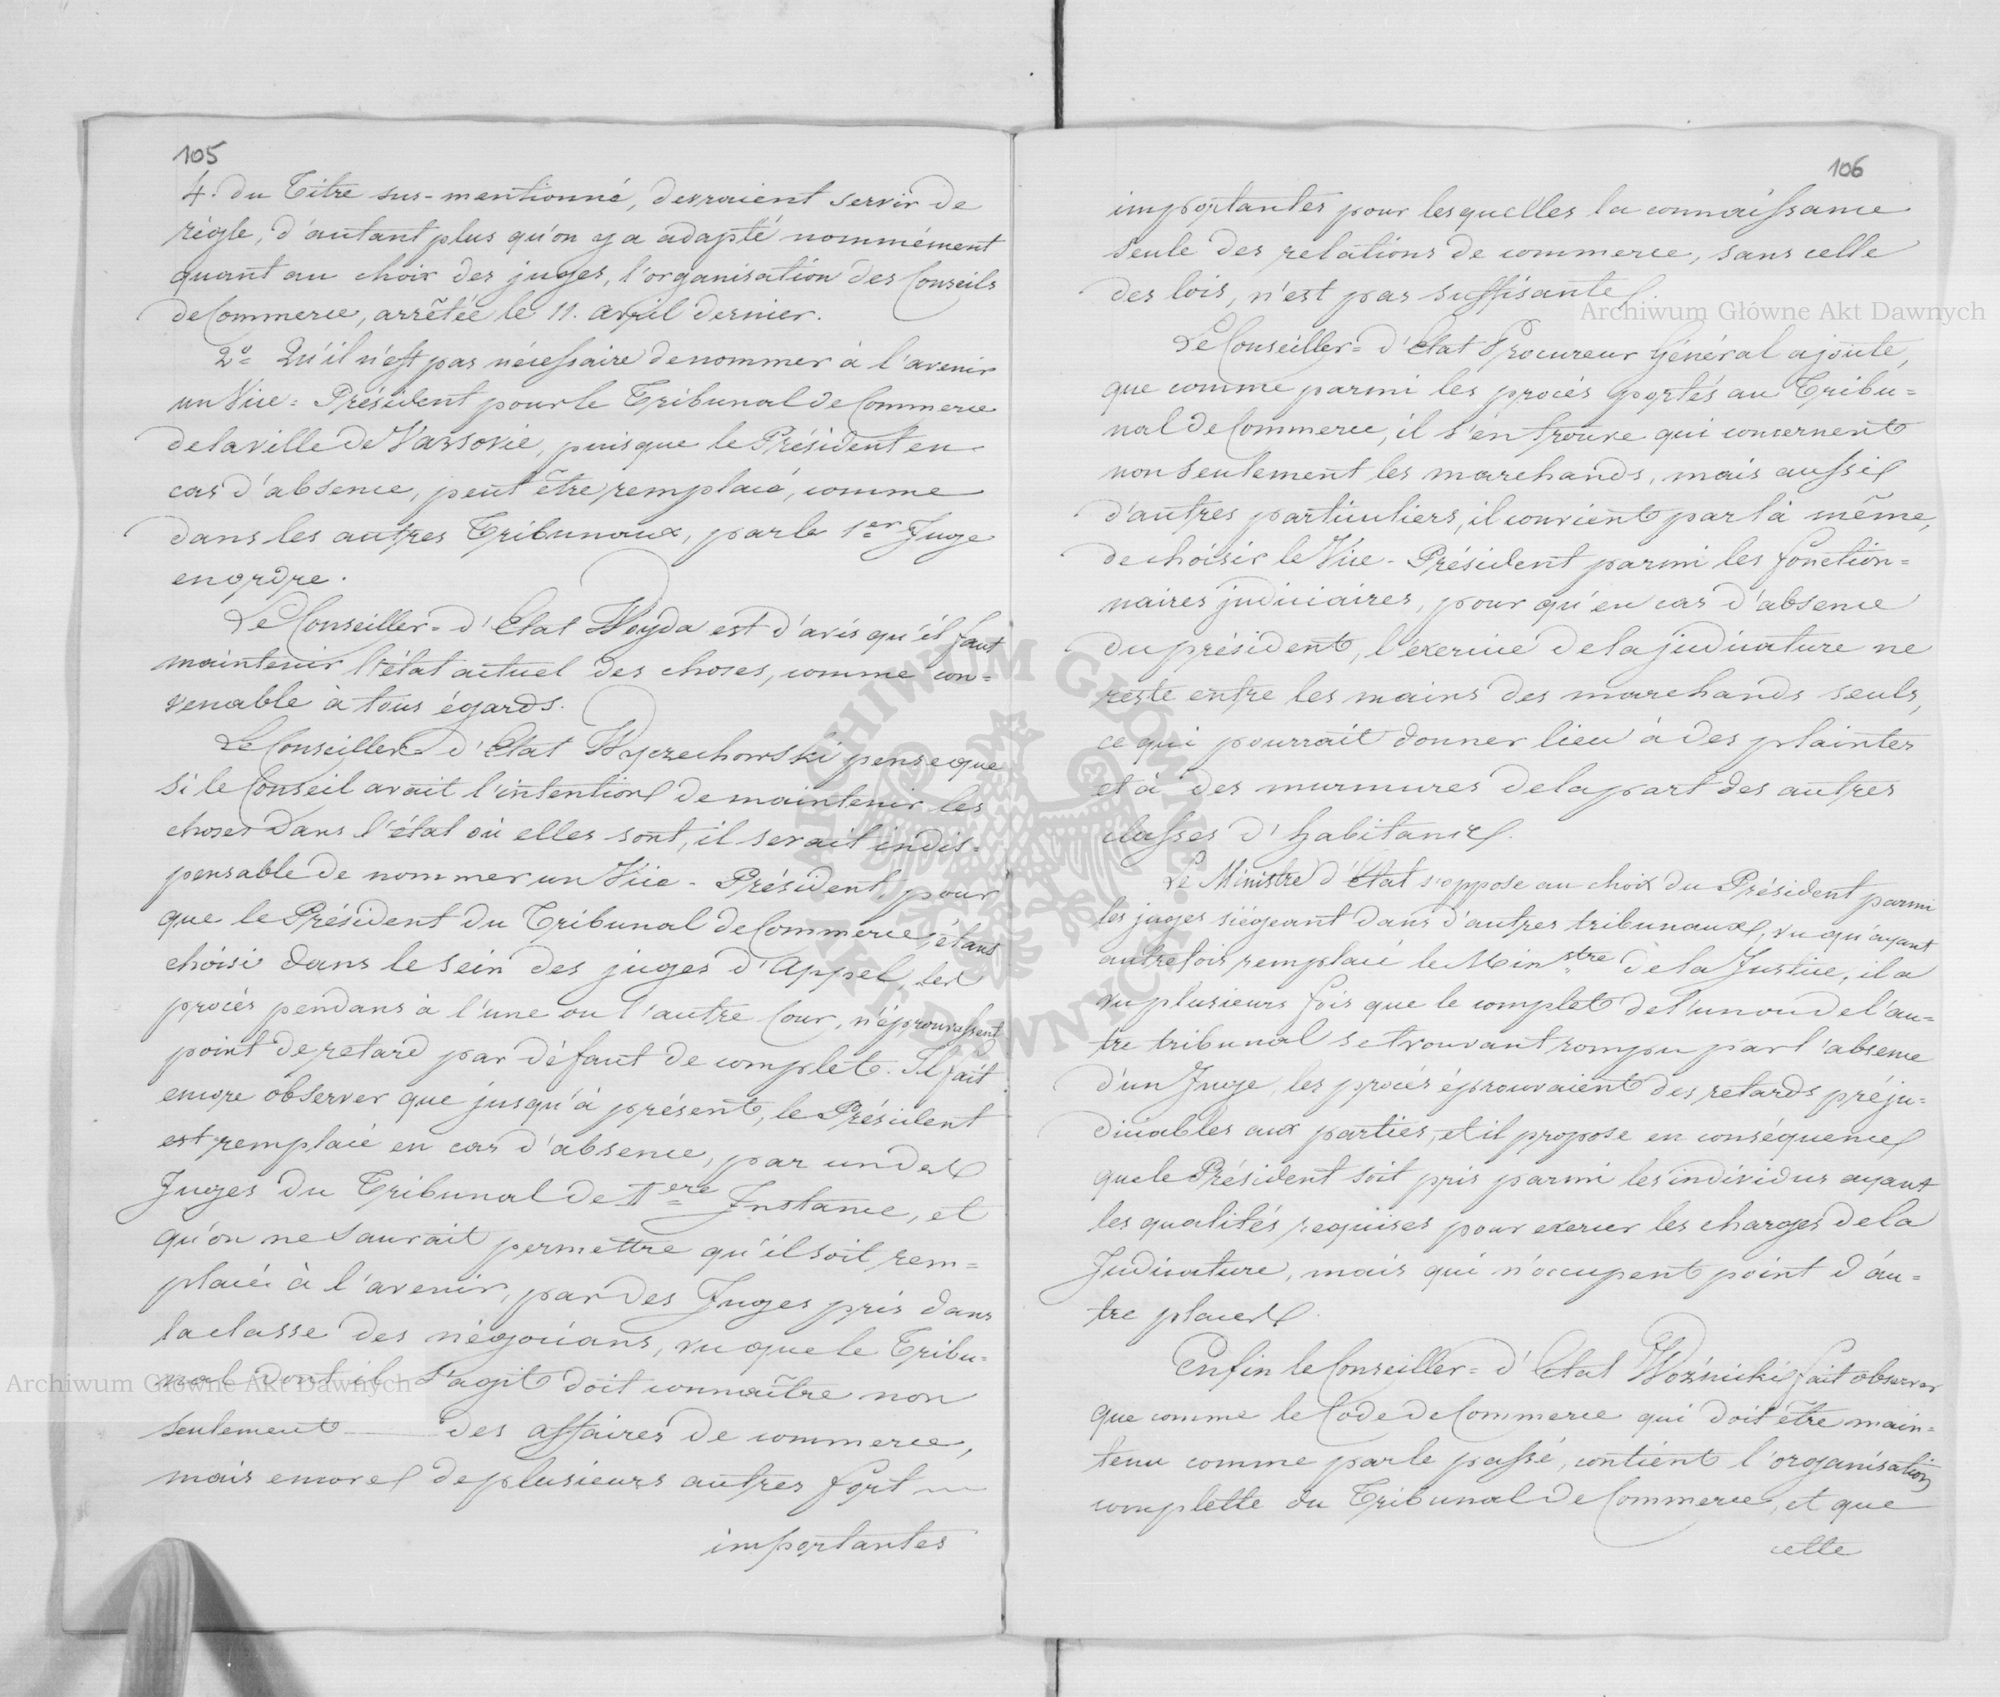 105
4. du Titre sus-mentionné, devraient servir de
règle, d'autant plus qu'on y a adapté nommément
quant au choix des juges, l'organisation des Conseils
de Commerce, arrêtée le 11. avril dernier.
2º Qu'il n'est pas nécessaire de nommer à l'avenir
un Vice-Président pour le Tribunal de Commerce
de la ville de Varsovie, puisque le Président en
cas d'absence, peut être remplacé, comme
dans les autres Tribunaux, par le 1er Juge
en ordre.
Le Conseiller-d'Etat Woyda est d'avis qu'il faut
maintenir l'état actuel des choses, comme con=
venable à tous égards.
Le Conseiller d'Etat Wyczechowski pense que
si le Conseil avait l'intention de maintenir les
choses dans l'état où elles sont, il serait indis=
pensable de nommer un Vice-Président, pour
que le Président du Tribunal de Commerce, étant
choisi dans le sein des juges d'Appel, les
procès pendans à l'une ou l'autre Cour, n'éprouvassent
point de retard par défaut de complet. Il fait
encore observer que jusqu'à présent, le Président
est remplacé en cas d'absence, par un des
Juges du Tribunal de Iere Instance, et
qu'on ne saurait permettre qu'il soit rem=
placé à l'avenir, par des Juges pris dans
la classe des négocians, vu que le Tribu=
nal dont il s'agit doit connaître non
seulement des affaires de commerce,
mais encore de plusieurs autres fort
importantes
106
importantes pour lesquelles la connaissance
seule des relations de commerce, sans celle
des lois, n'est pas suffisante.
Le Conseiller=d'Etat Procureur Général ajoute,
que comme parmi les procès portés au Tribu=
nal de Commerce, il s'en trouve qui concernent
non seulement les marchands, mais aussi
d'autres particuliers, il convient par là même,
de choisir le Vice-Président parmi les fonction=
naires judiciaires, pour qu'en cas d'absence
du président, l'exercice de la judicature ne
reste entre les mains des marchands seuls,
ce qui pourrait donner lieu à des plaintes
et à des murmures de la part des autres
classes d'habitans.
Le Ministre d'Etat s'oppose au choix du Président parmi
les juges siégeant dans d'autres tribunaux, vu qu'ayant
autrefois remplacé le Ministre de la Justice, il a
vu plusieurs fois que le complet de l'un ou de l'au=
tre tribunal se trouvant rompu par l'absence
d'un Juge, les procès éprouvaient des retards préju=
diciables aux parties, et il propose en conséquence
que le Président soit pris parmi les individus ayant
les qualités requises pour exercer les charges de la
Judicature, mais qui n'occupent point d'au=
tre place.
Enfin le Conseiller=d'Etat Woźnicki fait observer
que comme le Code de Commerce qui doit être main=
tenu comme par le passé, contient l'organisation
complette du Tribunal de Commerce, et que
cette
Archiwum Główne Akt Dawnych
Archiwum Główne Akt Dawnych
ARCHIWUM GŁÓWNE AKT DAWNYCH